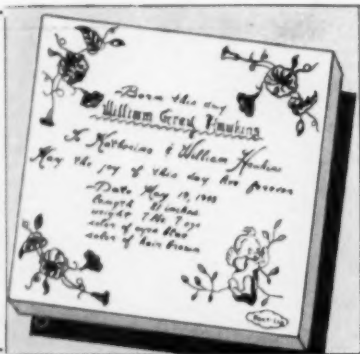 Born this day
William Grey Hawkins
To Katherine & William Hawkins
May the joy of this day live forever
Date May 19, 
length 21 inches
weight 7 lbs 7 ozs
color of eyes blue
color of hair brown